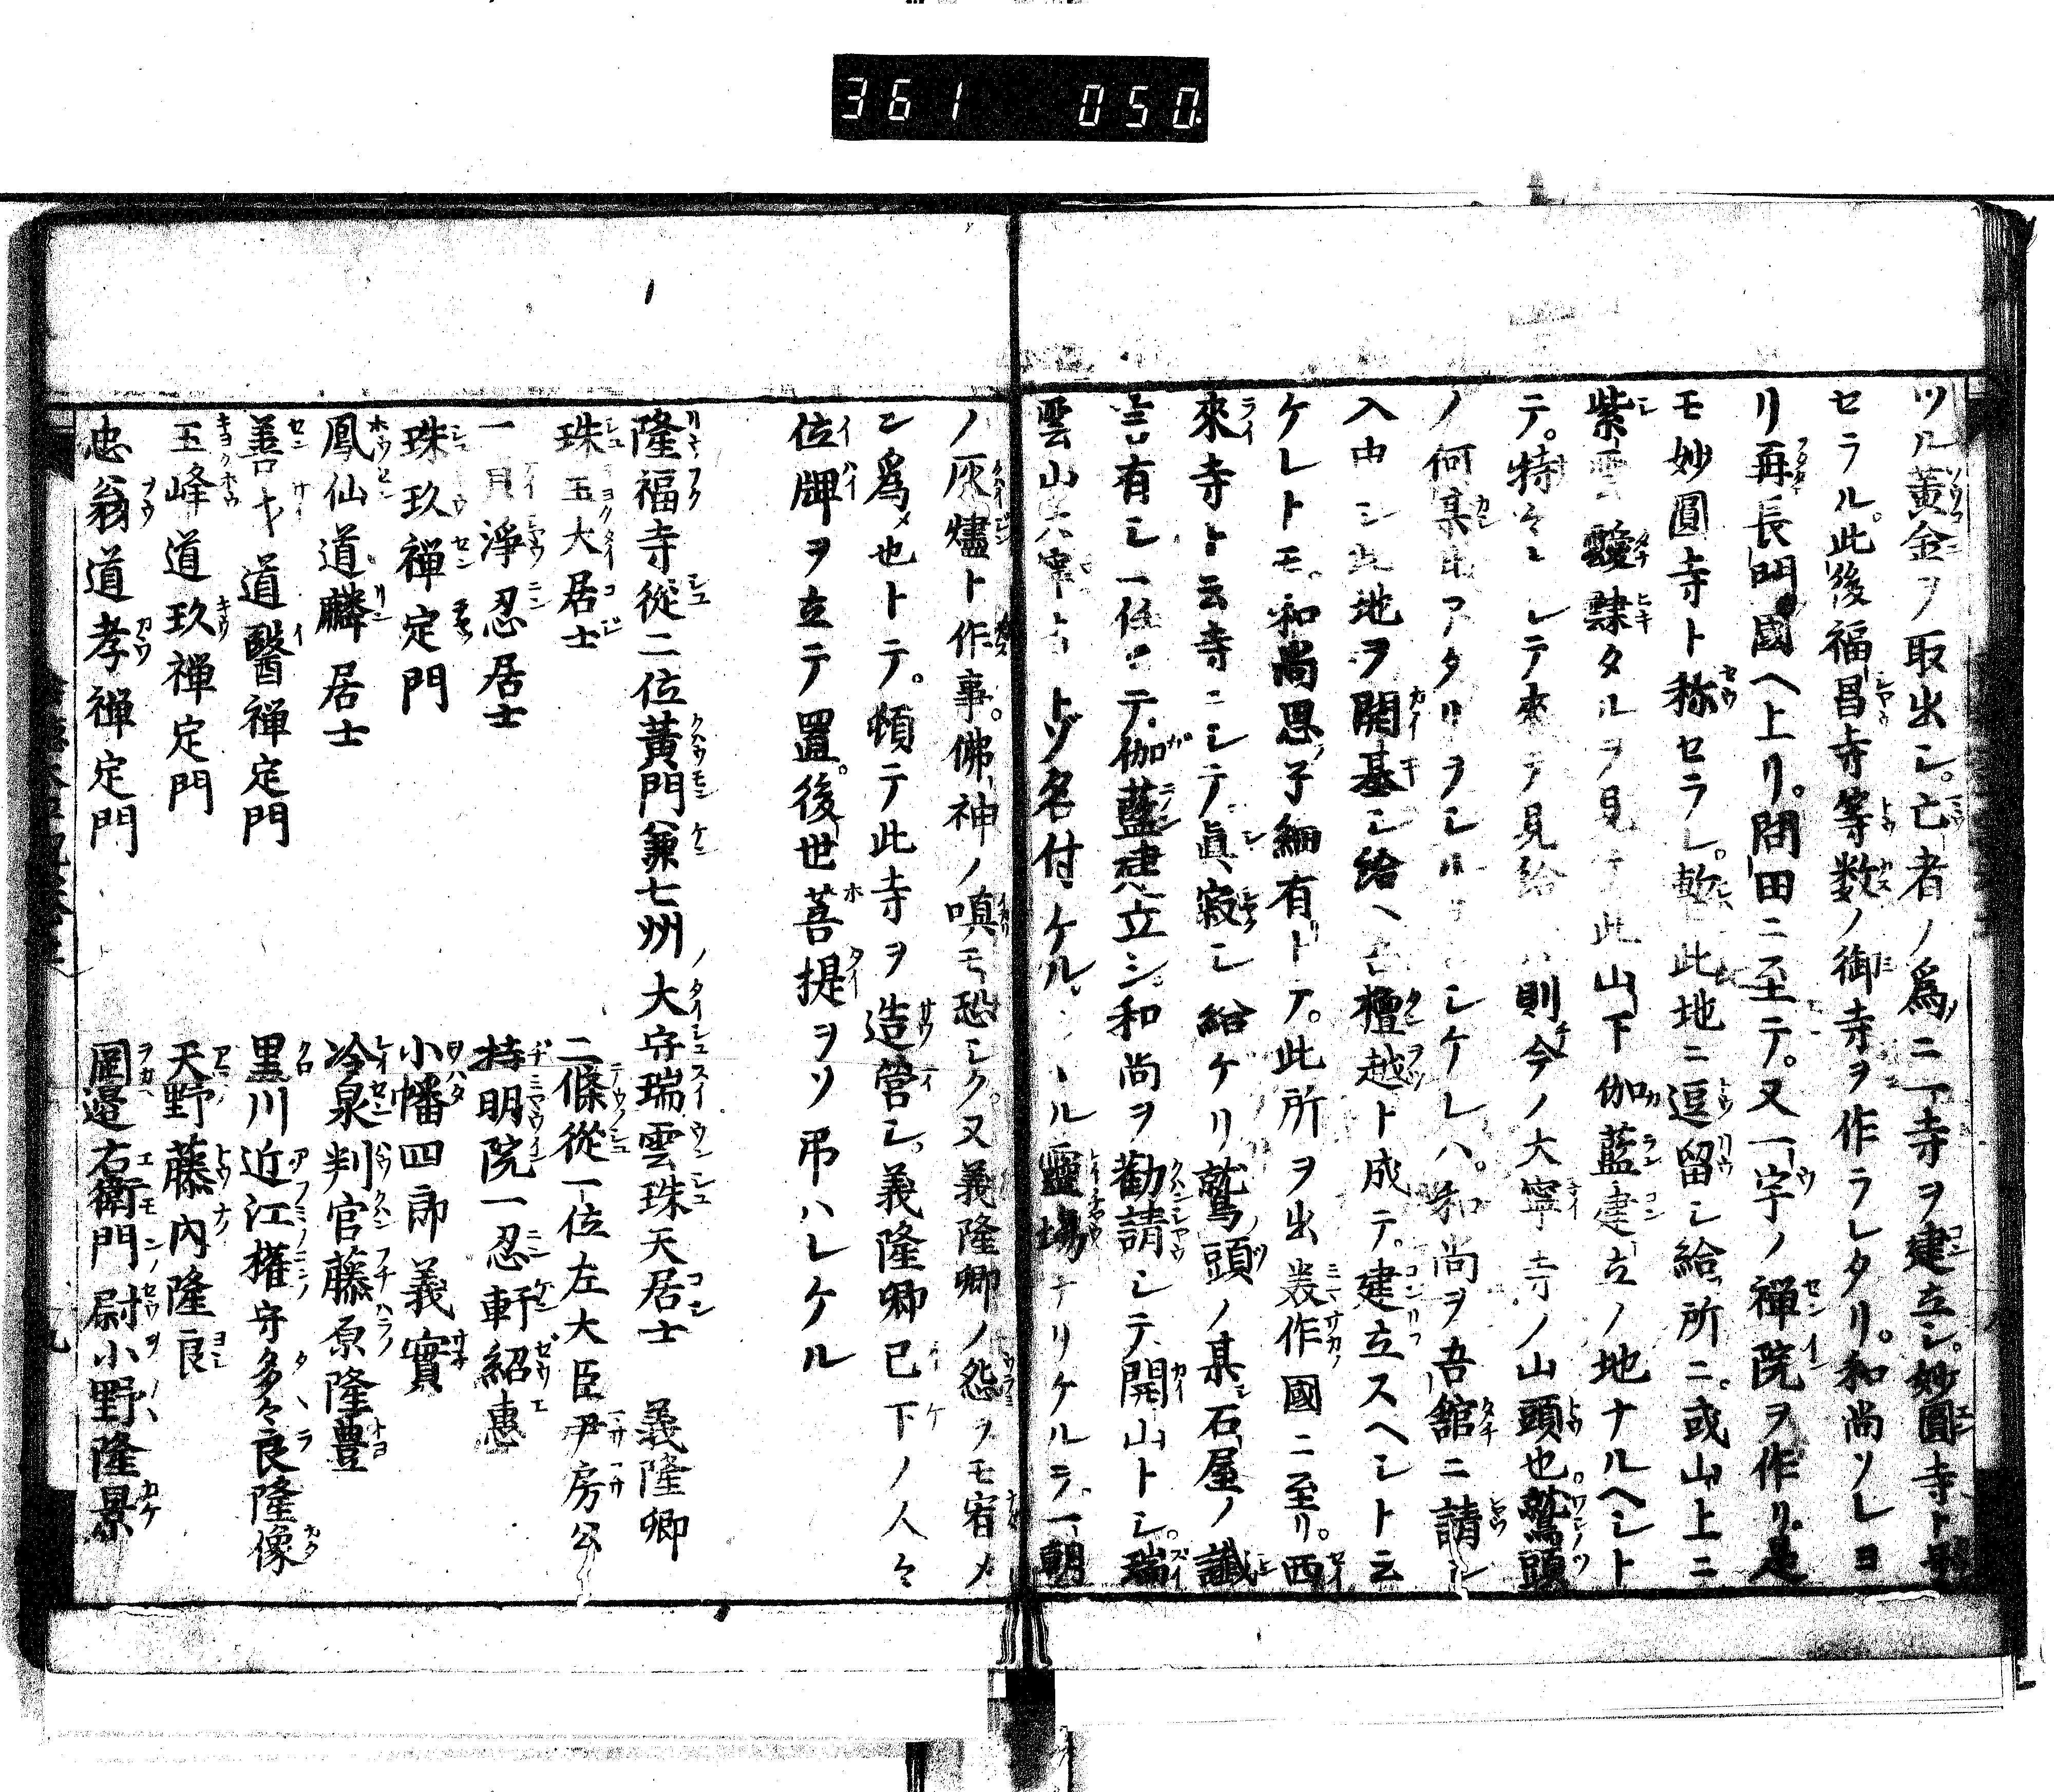 361 050
ツル黄金ヲ取出シ。亡者ノ為ニ一寺ヲ建立シ。妙圓寺ト号
セラル。此後福昌寺等数ノ御寺ヲ作ラレタリ。和尚ソレヨ
リ再長門國ヘ上リ。問田ニ至テ。又一宇ノ禅院ヲ作リ。是
モ妙圓寺ト称セラレ。此地ニ逗留シ給所ニ。或山上ニ
紫雲靉靆タルヲ見テ此山下伽藍建立ノ地ナルヘシト
テ。特シテ来テ見給ハ則今ノ大寧寺ノ山頭也。鷲頭
ノ何某アタリヲシケレハ。和尚ヲ吾舘ニ請シ
入申シ此地ヲ開基シ給ヘ檀越ト成テ。建立スヘシト云
ケレトモ。和尚思子細有トテ。此所ヲ出美作國ニ至リ。西
來寺ト云寺ニシテ眞寂シ給ケリ鷲頭ノ某石屋ノ讖
言有シニ任セテ。伽藍建立シ。和尚ヲ勸請シテ開山トシ。瑞
雲山大寧寺トゾ名付ケル。ル靈場ナリケルヲ。一朝
ノ灰燼ト作事。佛神ノ嗔モ恐シク。又義隆卿ノ怨ヲモ宥メ
ン為メ也トテ。頓テ此寺ヲ造營シ。義隆卿已下ノ人々
位牌ヲ立テ置。後世菩提ヲソ弔ハレケル
隆福寺從二位黄門兼七州ノ大守瑞雲珠天居士 義隆卿
珠玉大居士 二條從一位左大臣尹房公
一 淨忍居士 持明院一忍軒紹惠
珠玖禅定門 小幡四郎義實
鳳仙道麟居士 冷泉判官藤原隆豊
善才道醫禅定門 黒川近江權守多々良隆像
玉峰道玖禅定門 天野藤内隆良
忠翁道孝禅定門 岡邉右衛門尉小野隆景